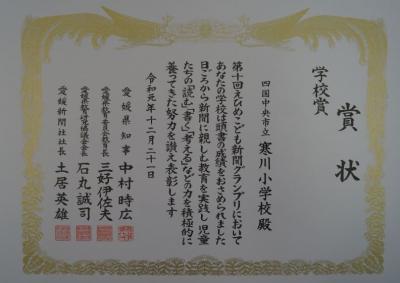 賞状
学校賞
四国中央市立 寒川小学校殿
第十回えひめこども新聞グランプリにおいて
あなたの学校は頭書の成績をおさめられました
日ごろから新聞に親しむ教育を実践し児童
たちの「読む」「書く」「考える」などの力を積極的に
養ってきた努力を讃え表彰します
令和元年十二月二十一日
愛媛県知事 中村時広
愛媛県教育委員会教育長 三好伊佐夫
石丸誠司
愛媛新聞社社長 土居英雄